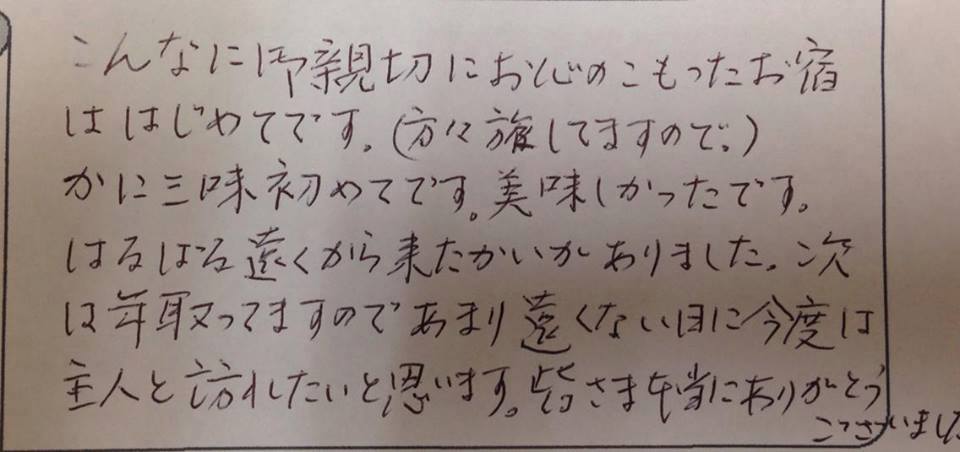 こんなに御親切にお心のこもったお宿
ははじめてです。(方々旅してますので。)
かに三味初めてです。美味しかったです。
はるばる遠くから来たかいがありました。次
は年取ってますのであまり遠くない日に今度は
主人と訪れたいと思います。皆さま本当にありがとう
ございました